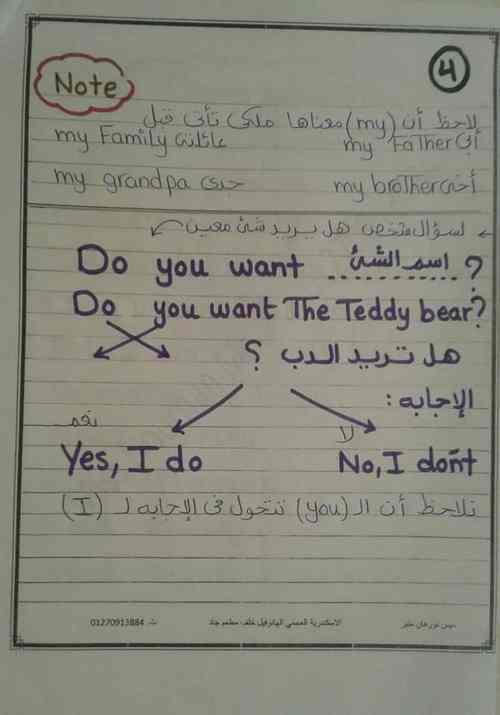 4
Note
لاحظ أن (my) معناها ملكى تأتى قبل
my Family عائلتى my Father أبى
my grandpa جدى my brother أخى
لسؤال شخص هل يريد شئ معين
Do you want اسم الشئ ........... ?
Do you want The Teddy bear?
هل تريد الدب ؟
الإجابه :
نعم لا
Yes, I do No, I don't
نلاحظ أن الـ (you) تتحول فى الإجابه لـ (I)
ميس نورهان منير الاسكندرية العجمي الهانوفيل خلف مطعم جاد ت. 01270913884